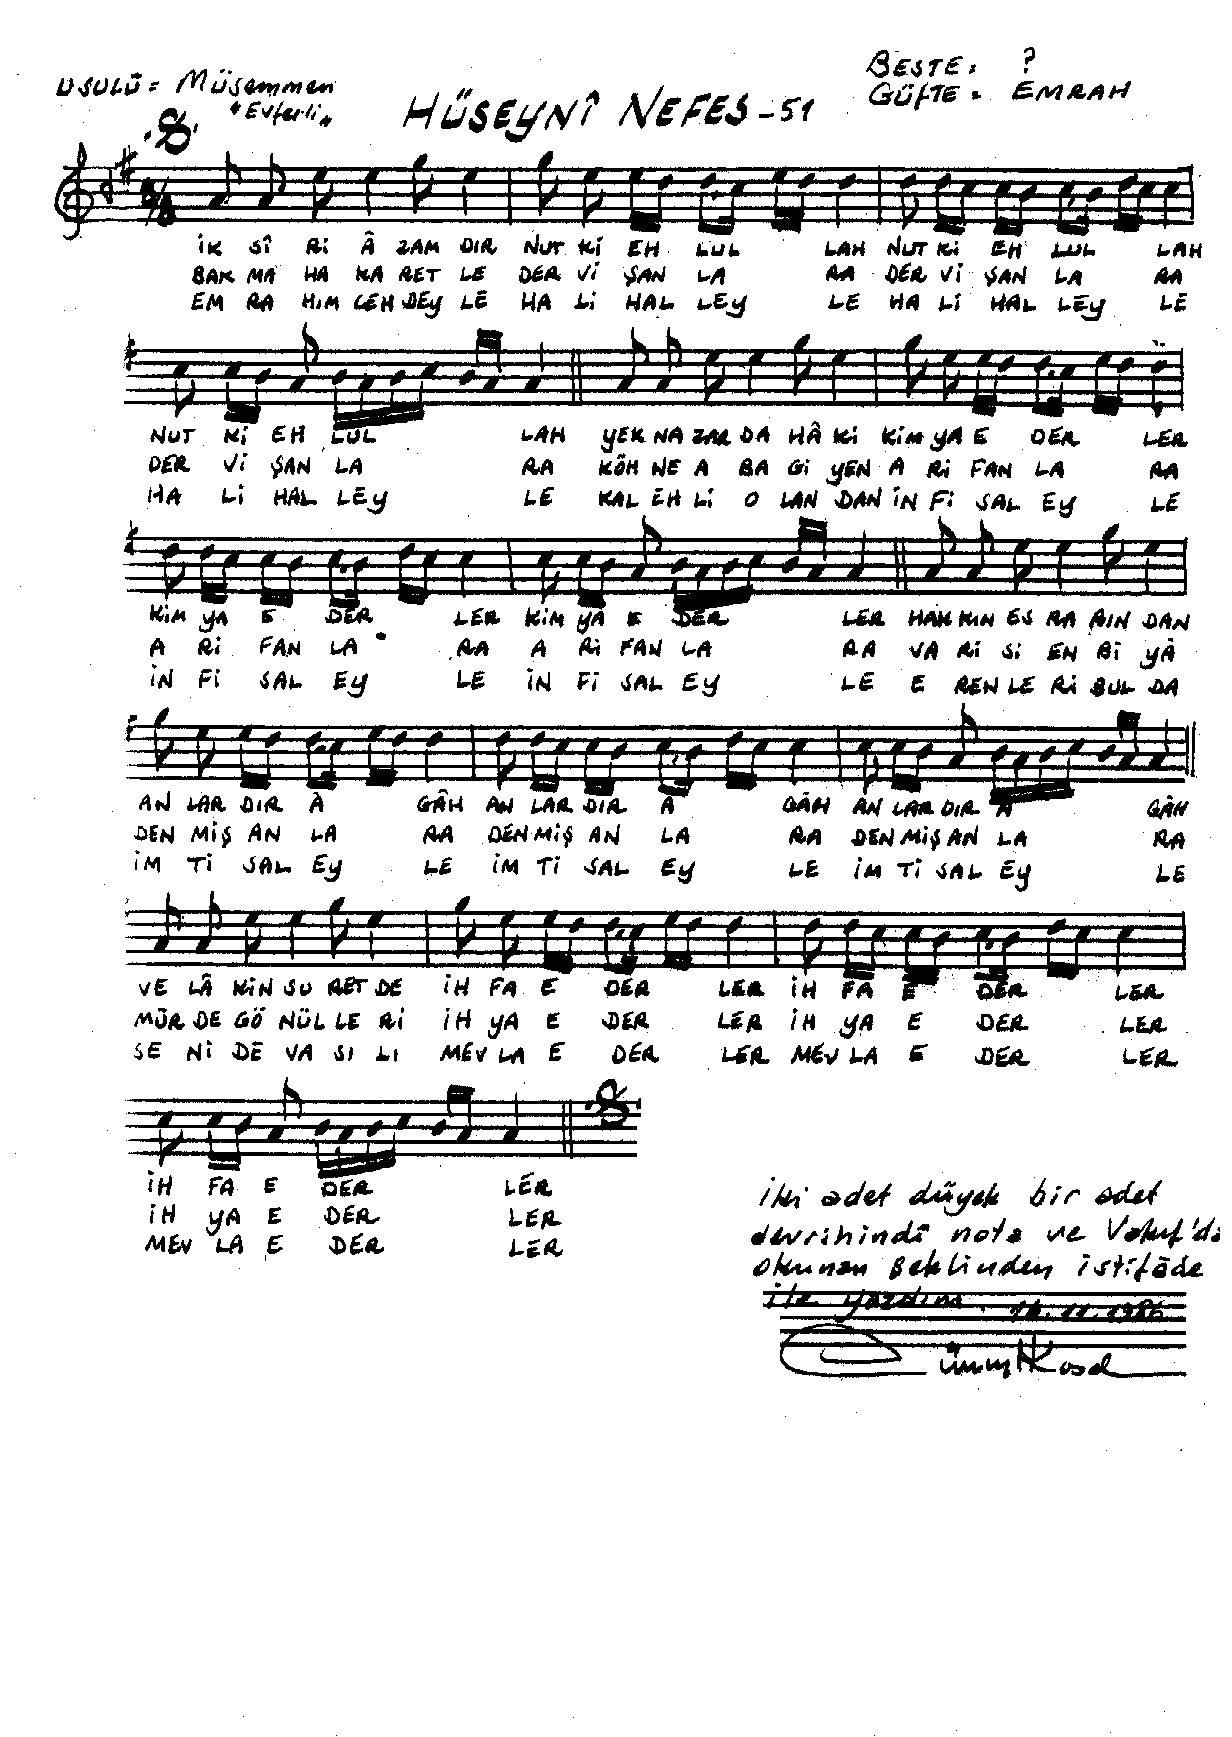 USULÜ = Müsemmen
"Evferli"
HÜSEYNÎ NEFES - 51
BESTE : ?
GÜFTE = EMRAH
İK SÎ Rİ Â ZAM DIR NUT Kİ EH LUL LAH NUT Kİ EH LUL LAH
BAK MA HA KA RET LE DER Vİ ŞAN LA RA DER Vİ ŞAN LA RA
EM RA HIM CEH DEY LE HA Lİ HAL LEY LE HA Lİ HAL LEY LE
NUT Kİ EH LUL LAH YEK NA ZAR DA HÂ Kİ KİM YA E DER LER
DER Vİ ŞAN LA RA KÖH NE A BA Gİ YEN A Rİ FAN LA RA
HA Lİ HAL LEY LE KAL EH Lİ O LAN DAN İN Fİ SAL EY LE
KİM YA E DER LER KİM YA E DER LER HAK KIN ES RA RIN DAN
A Rİ FAN LA RA A Rİ FAN LA RA VA Rİ Sİ EN Bİ YÂ
İN Fİ SAL EY LE İN Fİ SAL EY LE E REN LE Rİ BUL DA
AN LAR DIR Â GÂH AN LAR DIR Â GÂH AN LAR DIR Â GÂH
DEN MİŞ AN LA RA DEN MİŞ AN LA RA DEN MİŞ AN LA RA
İM Tİ SAL EY LE İM Tİ SAL EY LE İM Tİ SAL EY LE
VE LÂ KİN SU RET DE İH FA E DER LER İH FA E DER LER
MÜR DE GÖ NÜL LE Rİ İH YA E DER LER İH YA E DER LER
SE Nİ DE VA SI LI MEV LA E DER LER MEV LA E DER LER
İH FA E DER LER
İH YA E DER LER
MEV LA E DER LER
İki adet düyek bir adet
devrihindî nota ve Vakıf'da
okunan şeklinden istifâde
ile yazdım. 16.11.1986
Cüneyd Kosal